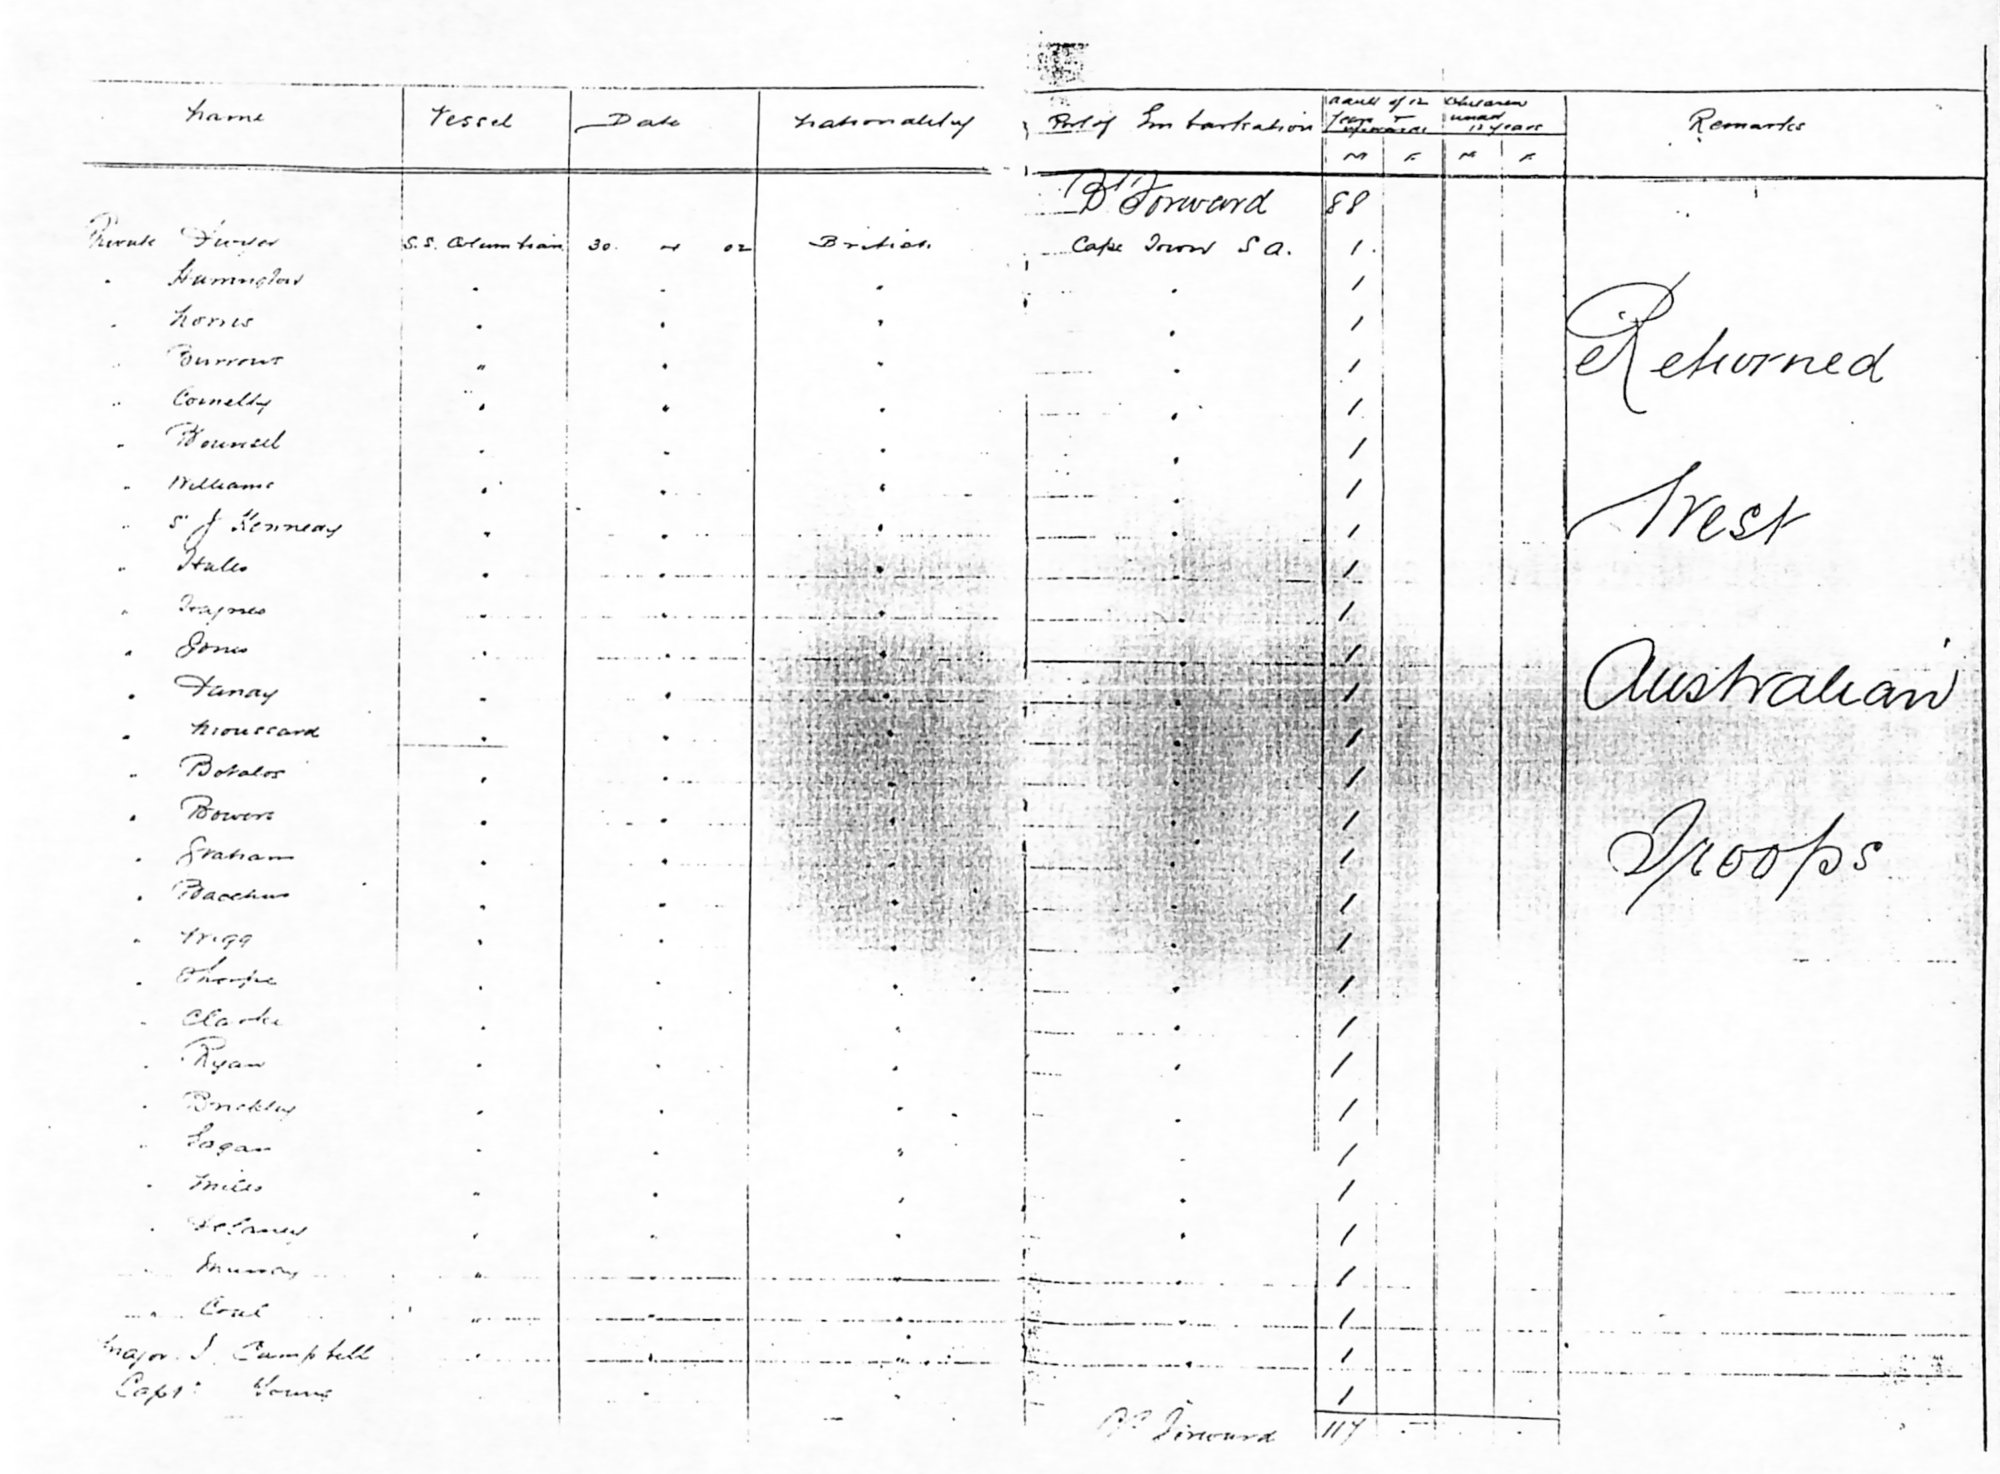 Name Vessel Date Nationality Port of Embarkation Adult of 12 Years & upwards Children under 12 years Remarks
M F M F
Bt Forward 88
Private Dwyer S.S. Columbian 30 4 02 British Cape Town S A. 1
" Harrington " " " " 1
" Norris " " " " 1
" Burrows " " " " 1
" Connelly " " " " 1
" Bounsel " " " " 1
" Williams " " " " 1
" S J Kennedy " " " " 1
" Hales " " " " 1
" " " " " 1
" Jones " " " " 1
" " " " " 1
" Moussard " " " " 1
" " " " " 1
" Bowers " " " " 1
" Graham " " " " 1
" Bacchus " " " " 1
" Wigg " " " " 1
" Thorpe " " " " 1
" Clarke " " " " 1
" Ryan " " " " 1
" Brickley " " " " 1
" Logan " " " " 1
" Miles " " " " 1
" Delaney " " " " 1
" Murray " " " " 1
" " " " " 1
Major J. Campbell " " " " 1
Capt: Young " " " 1
Cd Forward 117
Returned
West
Australian
Troops